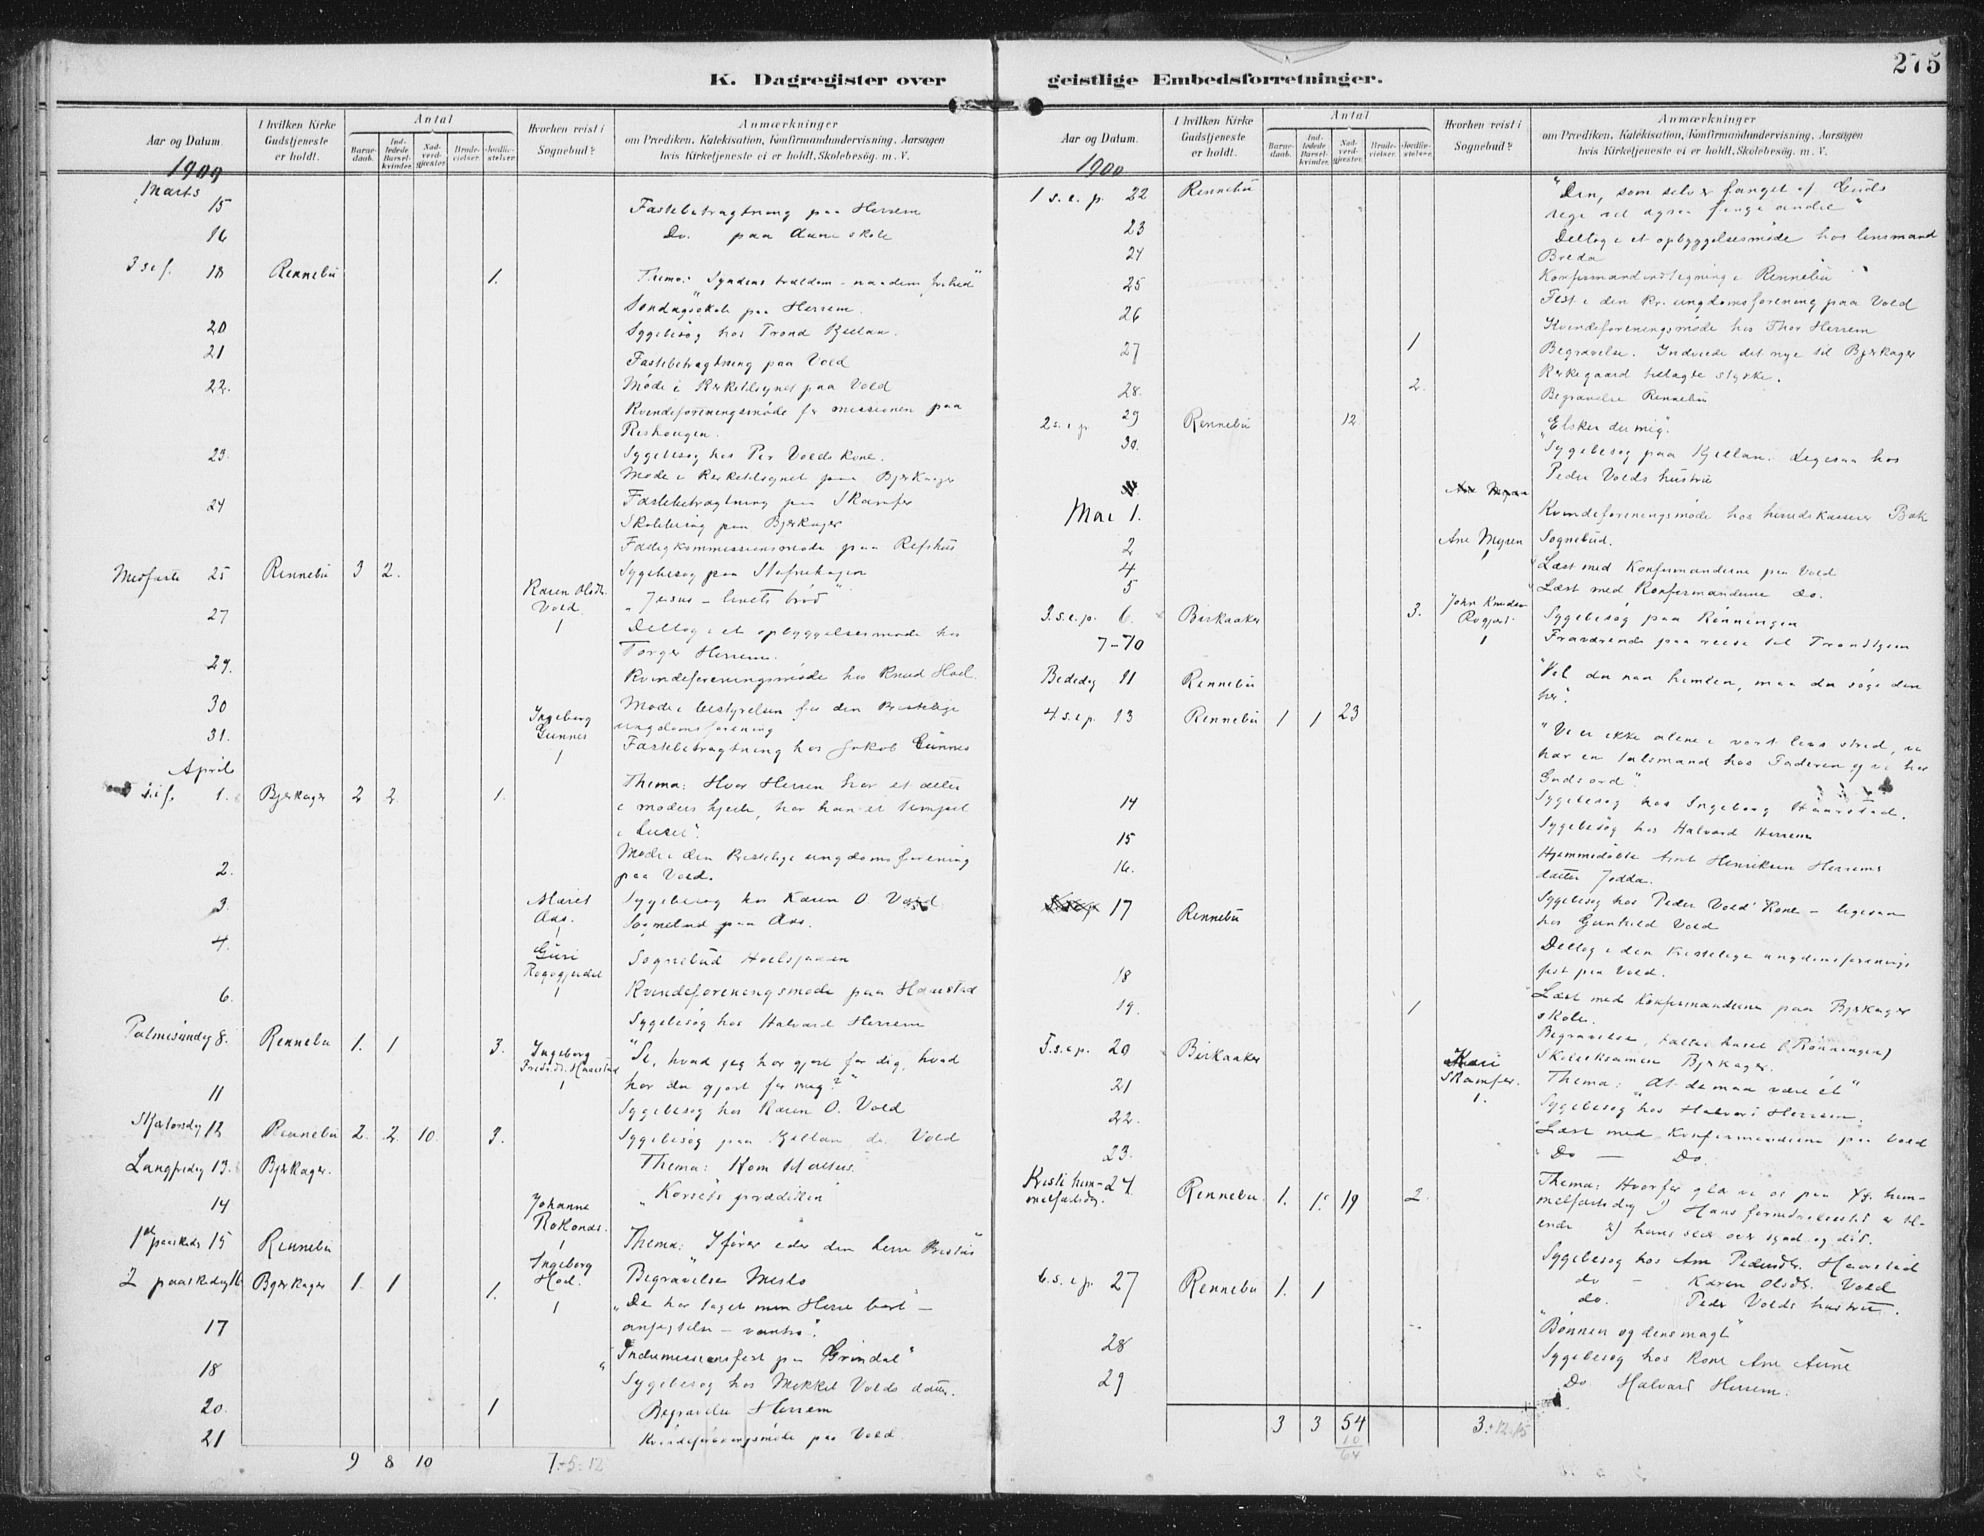 275
K. Dagregister over
geistlige Embedsforretninger.
Aar og Datum.
I hvilken Kirke Gudstjeneste er holdt.
Antal
Barnedaab.
Indledede Barselkvinder.
Nadverdgjester.
Brudevielser.
Jordfæstelser.
Hvorhen reist i Sognebud?
Anmærkninger
om Prædiken, Katekisation, Konfirmandundervisning, Aarsagen
hvis Kirketjeneste ei er holdt, Skolebesøg m. V.
1900
Marts
15 Fastebetragtning paa Herrem
16 Do. paa Aune skole
3 s i f. 18 Rennebu 1. Thema: "Syndens trældom - naadens frihed"
Søndagsskole paa Herrem.
20 Sygebesøg hos Trond Kjellan.
21 Fastebetragtning paa Vold
22. Møde i Kirketilsynet paa Vold
Kvindeforeningsmøde for missionen paa
Reshougen.
23. Sygebesøg hos Per Volds kone.
Møde i Kirketilsynet paa Bjerkager
24 Fastebetragtning paa Skamfer
Skolebesøg paa Bjerkager
Fattigkommissionsmøde paa Refshus
Midfaste 25 Rennebu 3 2. Sygebesøg paa Stafnehagen
Karen Olsdtr. Vold 1 "Jesus - livets brød"
27 Deltog i et opbyggelsesmøde hos
Torger Herrem.
29. Kvindeforeningsmøde hos Knud Hoel.
30 Møde i bestyrelsen for den kristelige
ungdomsforening
Ingeborg Gunnes 1
31. Fastebetragtning hos Jakob Gunnes
April
s. i f. 1. Bjerkager 2 2 1. Thema: Hvor Herren har et alter
i moders hjerte, har han et tempel
i huset".
2. Møde i den kristelige ungdomsforening
paa Vold.
3. Marit Aas. 1 Sygebesøg hos Karen O. Vold
Sognebud paa Aas.
4. Guri Rogogjerdet 1 Sognebud Hoelsjaren
Kvindeforeningsmøde paa Haarstad
6. Sygebesøg hos Halvard Herrem
Palmesøndag 8. Rennebu 1. 1 3. Ingeborg Fredrikdt. Haarstad 1 "Se, hvad jeg har gjort for dig, hvad
har du gjort for mig?"
11 Sygebesøg hos Karen O. Vold
Skjærtorsdag 12 Rennebu 2. 2 10. 3. Sygebesøg paa Kjellan do. Vold
Langfredag 13. Bjerkager. Thema: Kom Hattus.
14 Johanne Rokonæs. 1 "Korsets prædiken"
1ste paaskedag 15 Rennebu Thema: Ifører eder den herre Kristus"
2 paaskedag 16. Bjerkager 1. 1 1. Ingeborg Hoel. 1 Begravelse Meslo
"De har taget min Herre bort" -
anfægtelse - vantro".
17 "Indremissionsfest paa Grindal"
18 Sygebesøg hos Mikkel Volds datter.
20. 1 Begravelse Herrem
21 Kvindeforeningsmøde paa Vold.
9 8 10 7+5=12
Aar og Datum.
I hvilken Kirke Gudstjeneste er holdt.
Antal
Barnedaab.
Indledede Barselkvinder.
Nadverdgjester.
Brudevielser.
Jordfæstelser.
Hvorhen reist i Sognebud?
Anmærkninger
om Prædiken, Katekisation, Konfirmandundervisning, Aarsagen
hvis Kirketjeneste ei er holdt, Skolebesøg m. V.
1900
1 s. e. p. 22 Rennebu "Den, som selv er fanget af Guds
rige vil ogsaa fange andre"
23 Deltog i et opbyggelsesmøde hos lensmand
Breda
24 Konfirmandindtegning i Rennebu
25 Fest i den kr. ungdomsforening paa Vold
26 Kvindeforeningsmøde hos Thor Herrem
27 1 Begravelse. Indviede det nye til Bjerkager
Kirkegaard tillagte stykke.
28. 2. Begravelse Rennebu
2 s. e p. 29 Rennebu 12 "Elsker du mig".
30. Sygebesøg paa Kjellan. Ligesaa hos
Peder Volds hustru
Ane Myren
Mai 1. Kvindeforeningsmøde hos herredskasserer Bak
2 Ane Myren 1 Sognebud.
4 Læst med Konfirmanderne paa Vold
5 Læst med Konfirmanderne do.
3. s. e. p. 6. Birkaaker 3. John Knudsen Rogjerd. 1 Sygebesøg paa Rønningen
7-10 Fraværende paa reise til Trondhjem
Bededag 11 Rennebu "Vil du naa himlen, maa du søge den
her".
4 s. e p. 13 Rennebu 1 1 23 "Vi er ikke alene i vort livs strid, vi
har en talsmand hos Faderen og vi har
Guds ord".
14 Sygebesøg hos Ingeborg Haarstad.
15 Sygebesøg hos Halvard Herrem
16. Hjemmedøbte Arnt Henriksen Herrems
datter Jodda.
17 Rennebu Sygebesøg hos Peder Volds Kone - ligesaa
hos Gunhild Vold
Deltog i den kristelige ungdomsforenings
18 fest paa Vold.
19. 1 Læst med Konfirmanderne paa Bjerkager
skole.
Begravelse, (Rønningen)
5. s. e p. 20 Birkaaker Kari Skamfer. 1. Skoleeksamen Bjerkager.
21 Thema: "At de maa være ét"
22. Sygebesøg hos Halvard Herrem.
23. Læst med Konfirmanderne paa Vold
"Do — Do.
Kristi himmelfartsdag. 24. Rennebu. 1. 1. 19 2. Thema: Hvorfor glæde vi os paa Kr. himmelfartsdag
1) Hans fornedrelsestid er til-
ende 2) hans seier over synd og død.
Sygebesøg hos Ane Pedersdtr. Haarstad
do — Karen Olsdtr. Vold
do. Peder Volds hustru.
6. s. e p. 27 Rennebu 1. 1 "Bønnen og dens magt"
28 Sygebesøg hos kone Ane Aune
29 Do Halvard Herrem.
3 3 54 3.+12=15
10
64